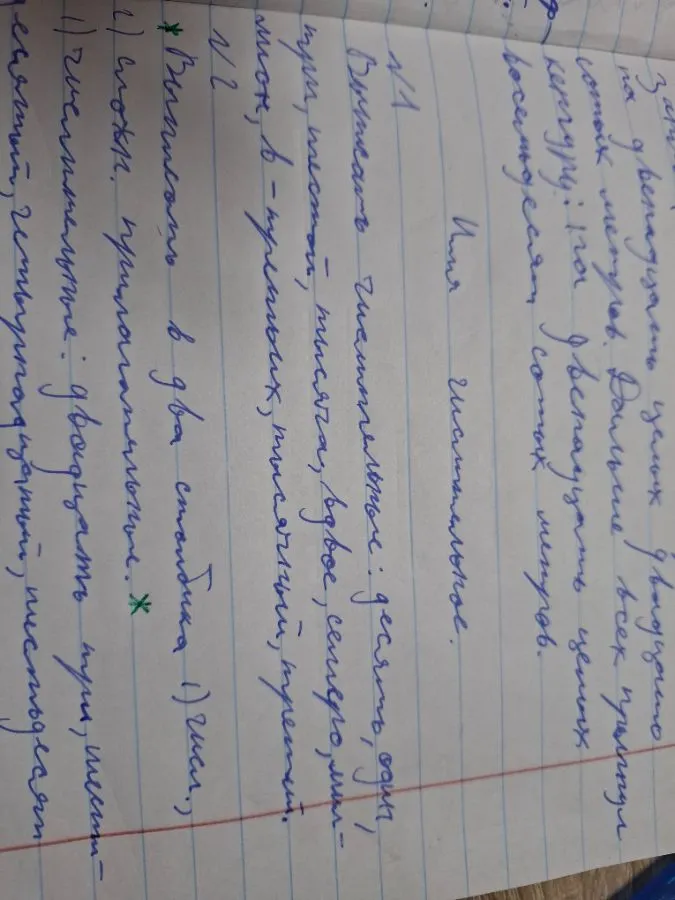 на двенадцать целых двадцать
сотых метров. Дальше всех прыгнул
кенгуру: на двенадцать целых
восемьдесят сотых метров.
Имя числительное.
№1
Выписать числительные: десять, один,
три, шестой, тысяча, вдвое, семеро, мил-
лион, в-третьих, тысячный, третий.
№2
* Выписать в два столбика 1) числ.,
2) сложн. прилагательные. *
1) числительные: двадцать три, шест-
десятый, четырнадцатый, шестьдесят